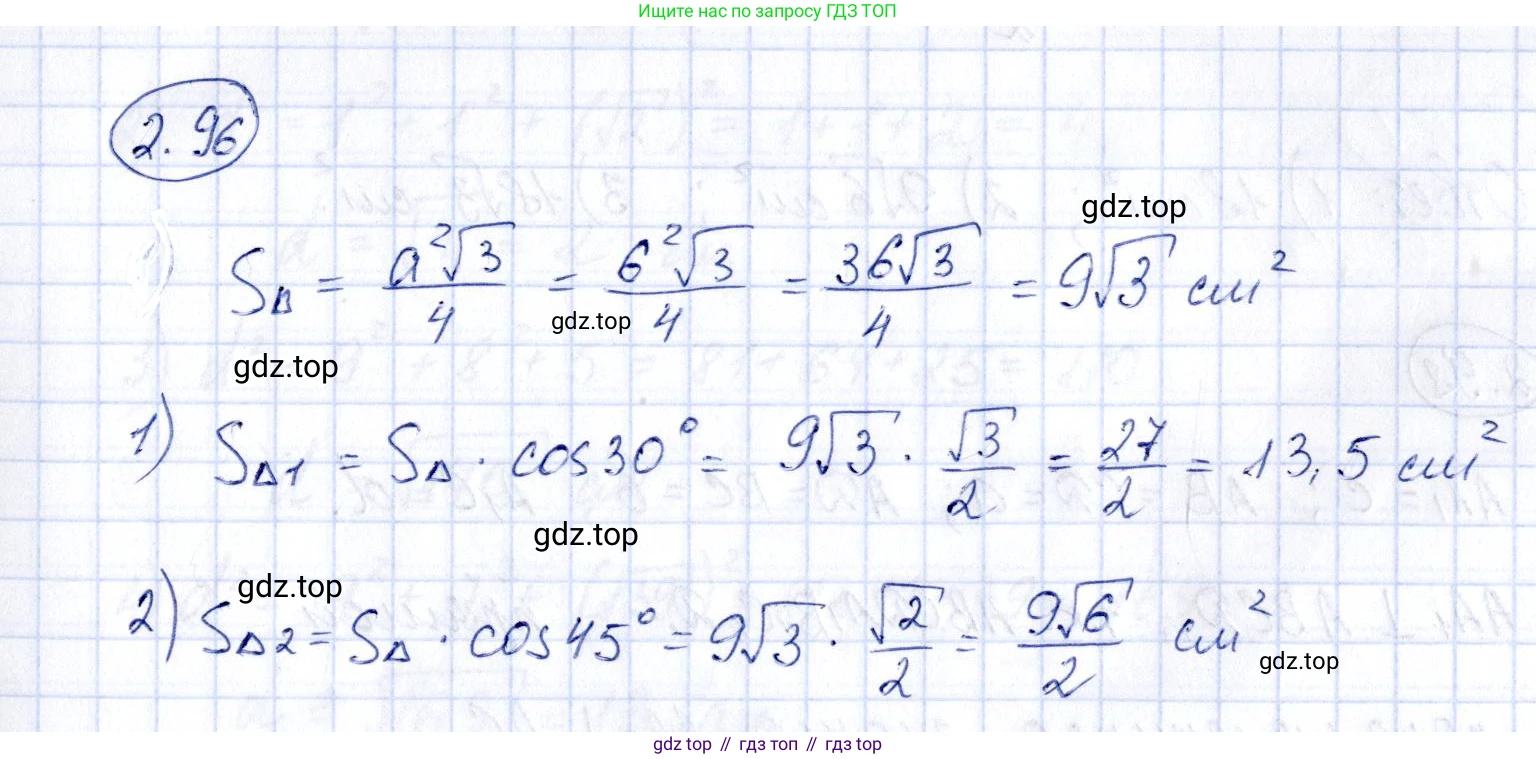 Ищите нас по запросу ГДЗ ТОП
2.96
gdz.top
S△ = a²√3/4 = 6²√3/4 = 36√3/4 = 9√3 см²
gdz.top
gdz.top
1) S△1 = S△ · cos30° = 9√3 · √3/2 = 27/2 = 13,5 см²
gdz.top
gdz.top
2) S△2 = S△ · cos45° = 9√3 · √2/2 = 9√6/2 см²
gdz.top
gdz.top // гдз топ // гдз top